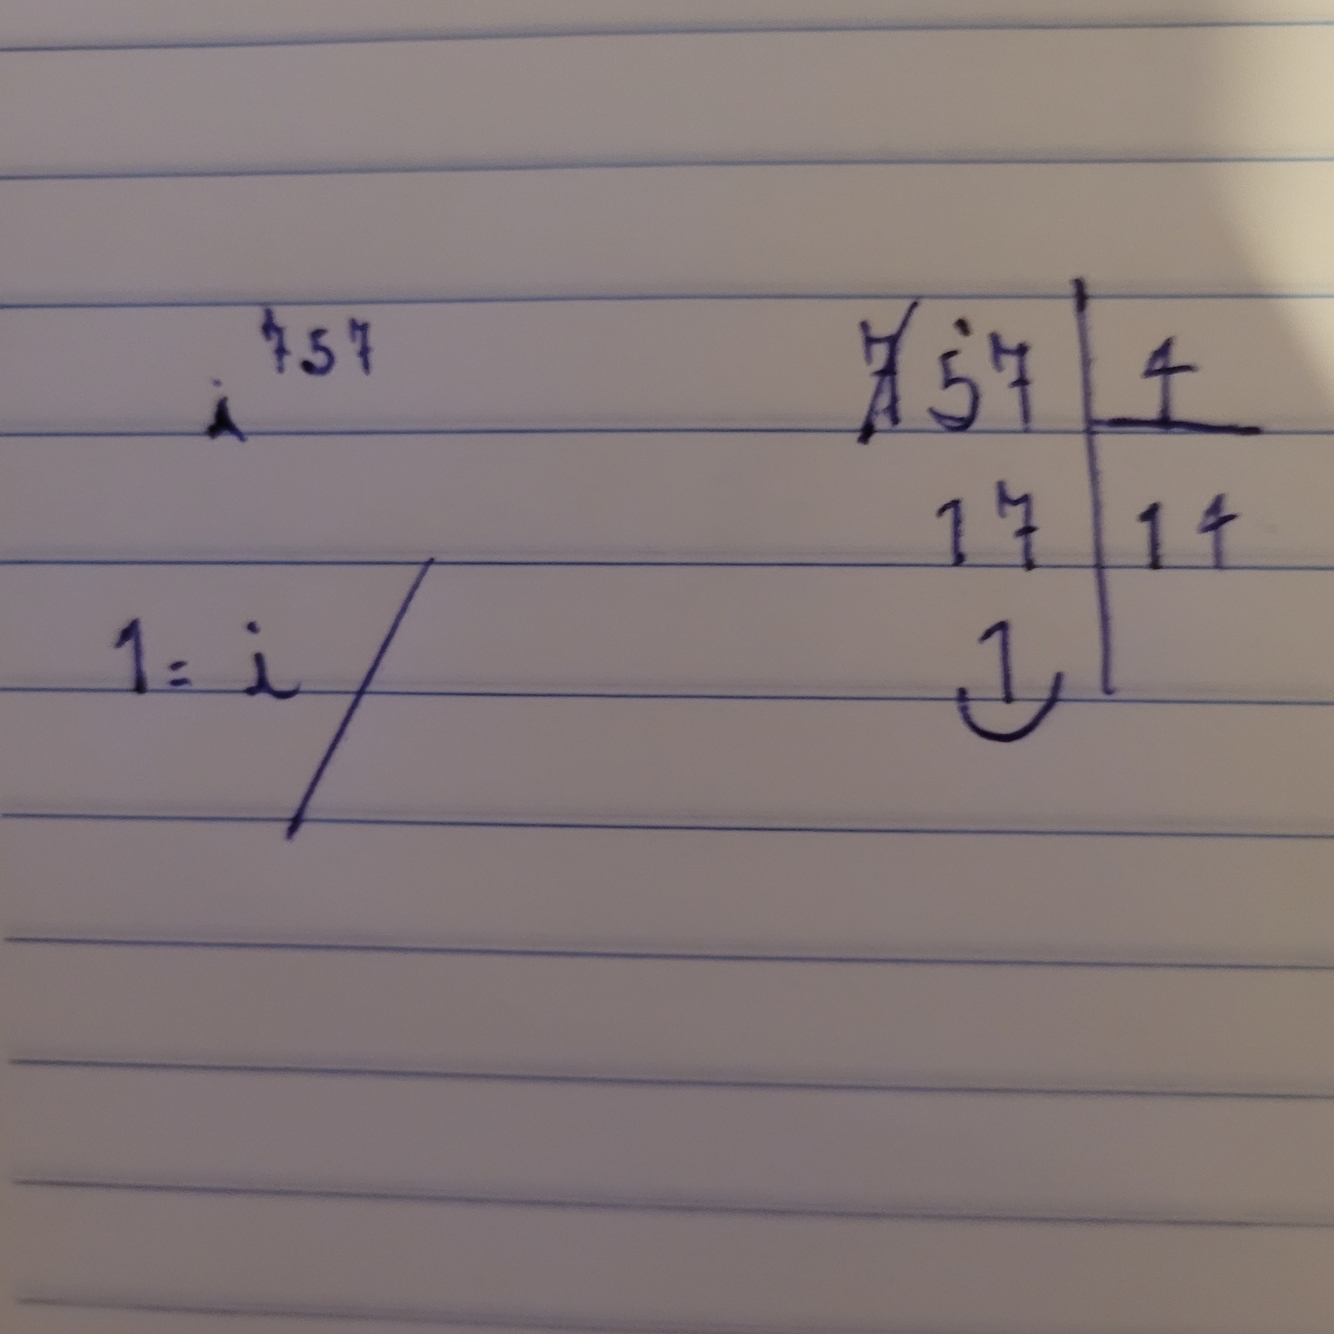 i⁷⁵⁷ 757 | 4
17 | 14
1 = i 1